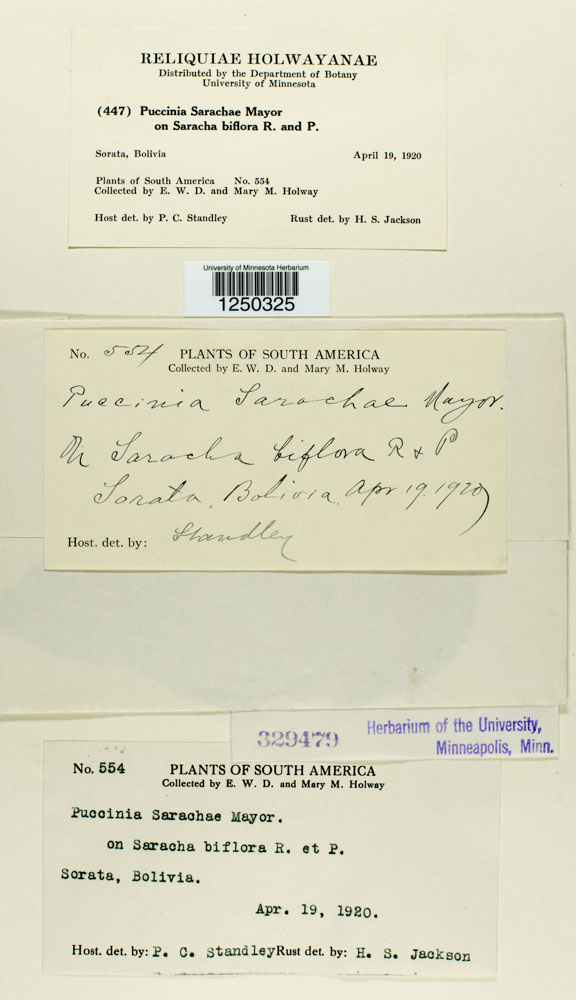 RELIQUIAE HOLWAYANAE
Distributed by the Department of Botany
University of Minnesota
(447) Puccinia Sarachae Mayor
on Saracha biflora R. and P.
Sorata, Bolivia April 19, 1920
Plants of South America No. 554
Collected by E. W. D. and Mary M. Holway
Host det. by P. C. Standley Rust det. by H. S. Jackson
University of Minnesota Herbarium
1250325
No. 554 PLANTS OF SOUTH AMERICA
Collected by E. W. D. and Mary M. Holway
Puccinia Sarachae Mayor.
On Saracha biflora R & P
Sorata, Bolivia. Apr 19. 1920
Host. det. by: Standley
329479 Herbarium of the University,
Minneapolis, Minn.
No. 554 PLANTS OF SOUTH AMERICA
Collected by E. W. D. and Mary M. Holway
Puccinia Sarachae Mayor.
on Saracha biflora R. et P.
Sorata, Bolivia.
Apr. 19, 1920.
Host. det. by: P. C. Standley Rust det. by: H. S. Jackson